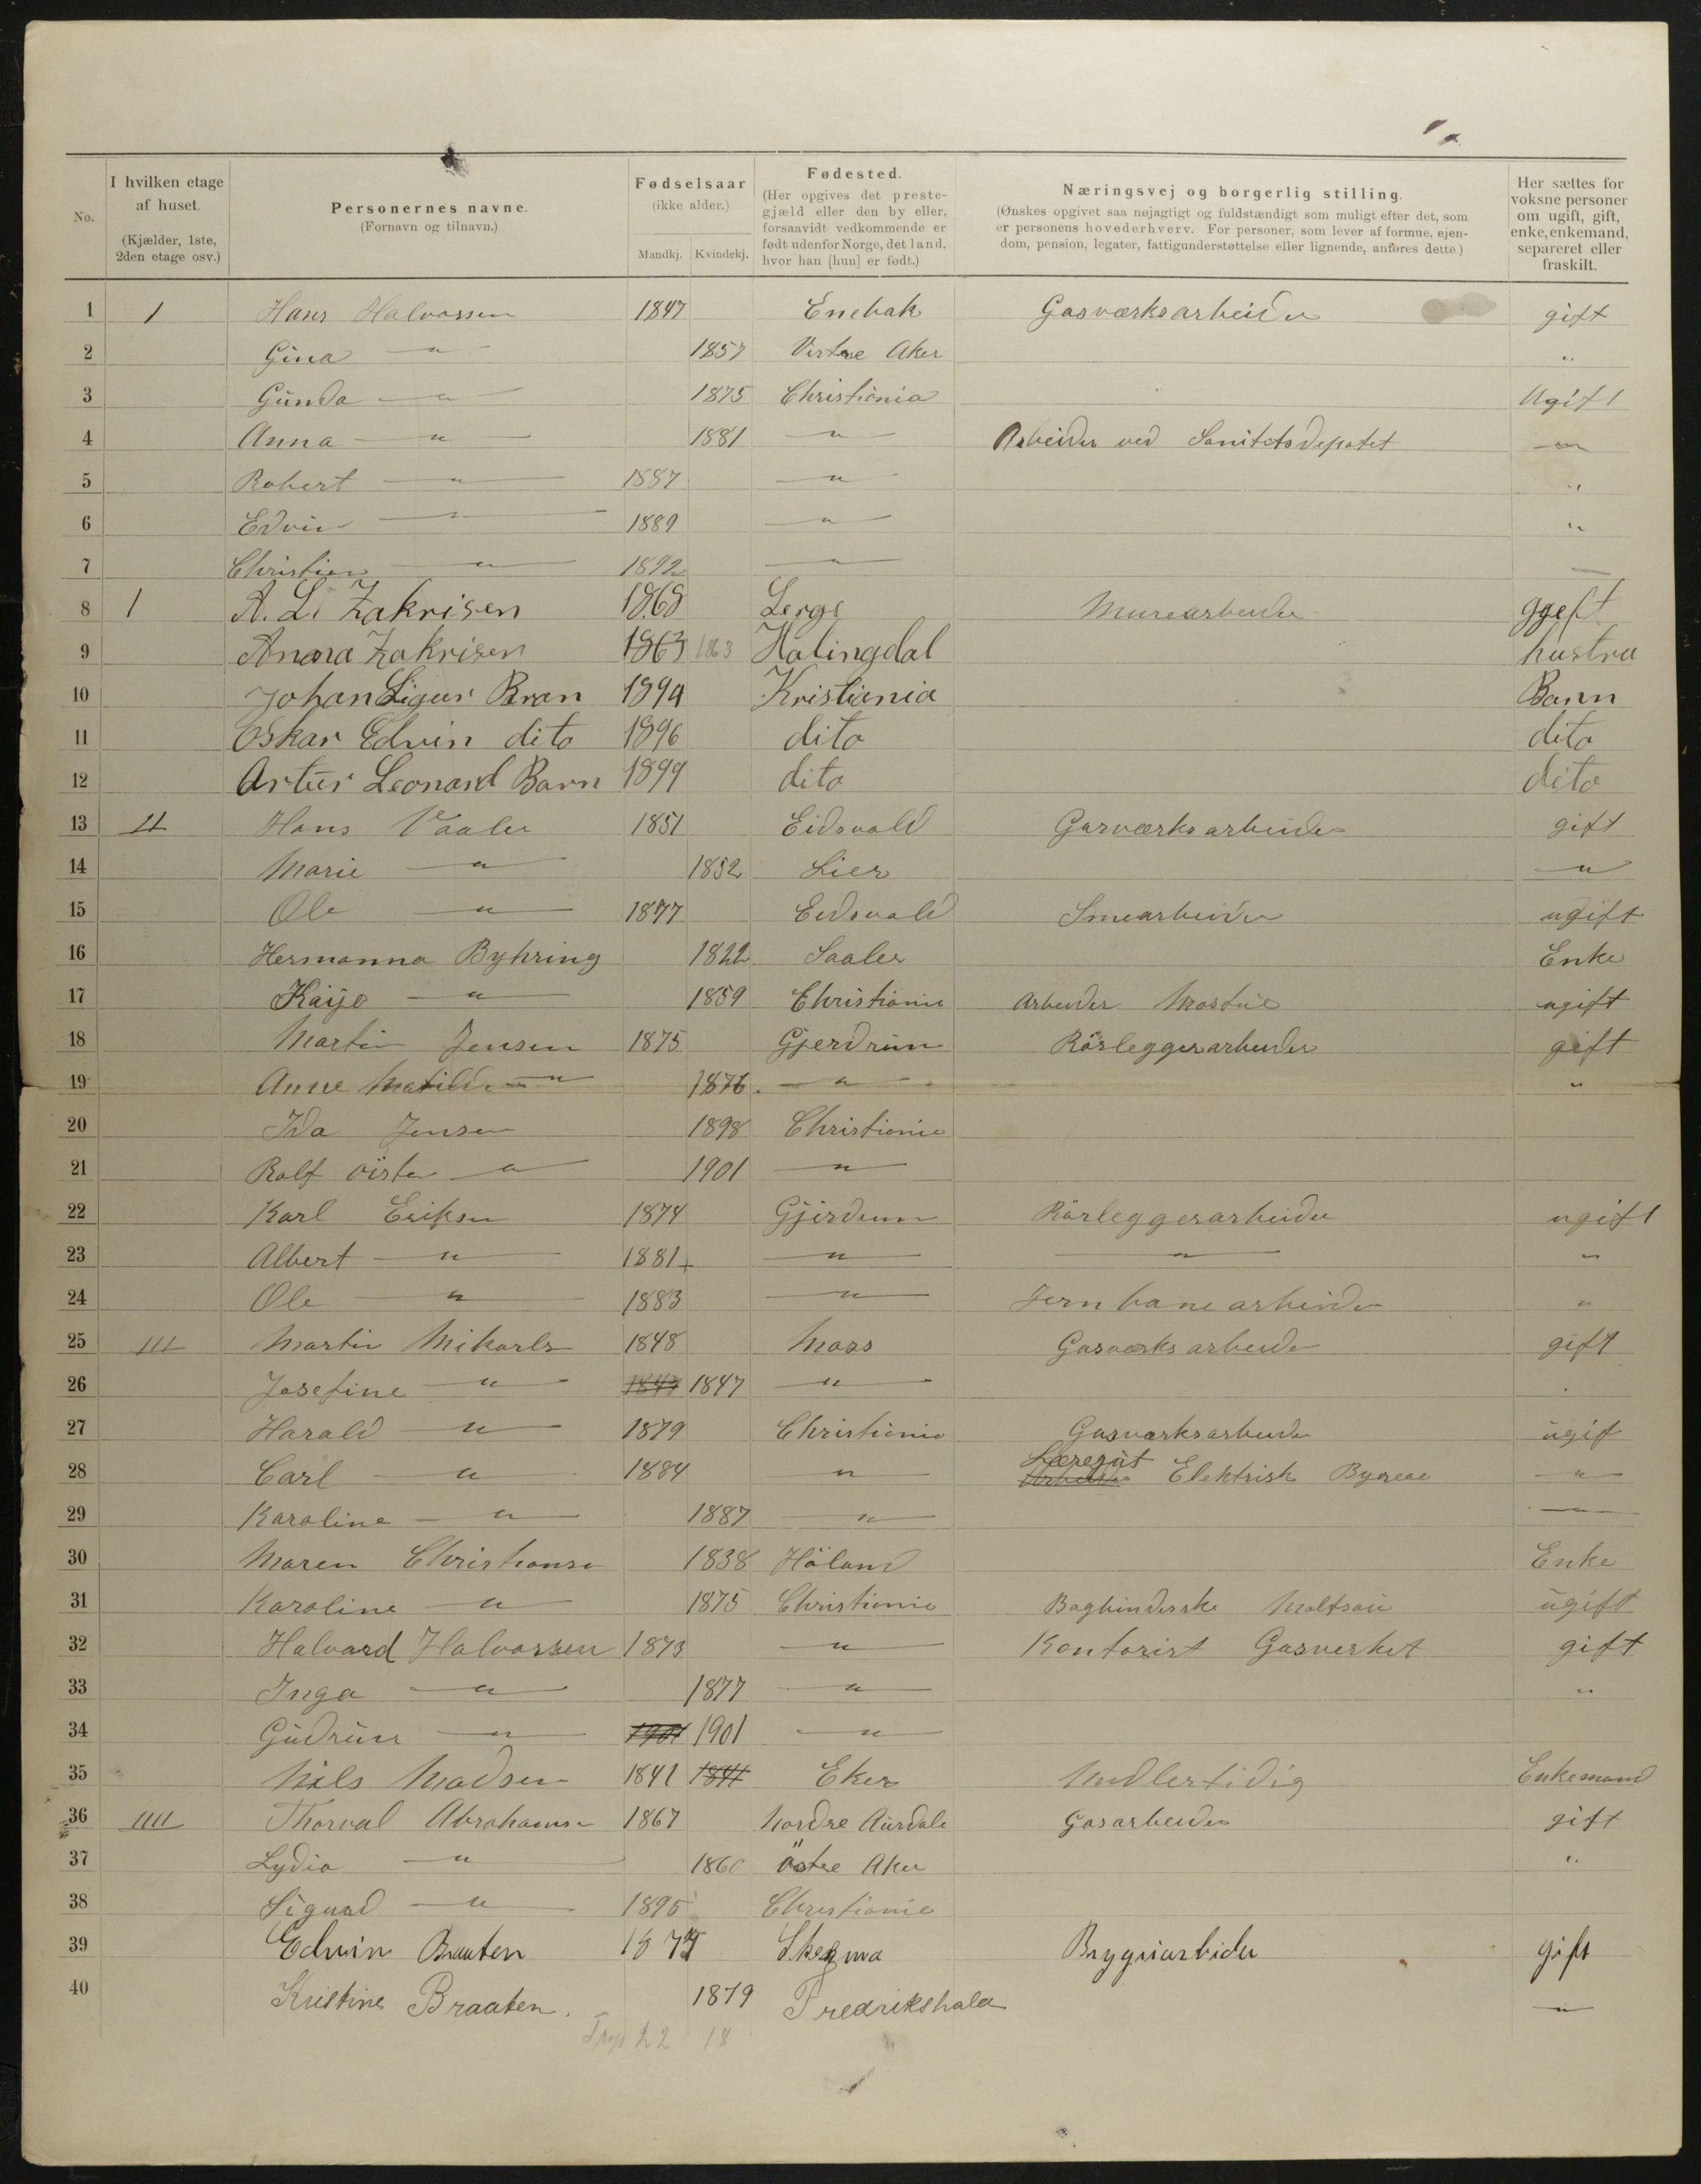 No.
I hvilken etage af huset.
(Kjælder, 1ste, 2den etage osv.)
Personernes navne.
(Fornavn og tilnavn.)
Fødselsaar
(ikke alder.)
Mandkj. Kvindekj.
Fødested.
(Her opgives det prestegjæld eller den by eller, forsaavidt vedkommende er født udenfor Norge, det land, hvor han [hun] er født.)
Næringsvej og borgerlig stilling.
(Ønskes opgivet saa nøjagtigt og fuldstændigt som muligt efter det, som er personens hovederhverv. For personer, som lever af formue, ejendom, pension, legater, fattigunderstøttelse eller lignende, anføres dette)
Her sættes for voksne personer om ugift, gift, enke, enkemand, separeret eller fraskilt.
1 I Hans Halvorssen 1847 Enebak Gasværksarbeider gift
2 Gina — " — 1857 Vestre Aker "
3 Gunda — " — 1875 Christiania Ugift
4 Anna — " — 1881 — " — Arbeider ved Sanitetsdepotet — " —
5 Robert — " — 1887 — " — "
6 Edvin — " — 1889 — " — "
7 Christian — " — 1892 — " — —
8 I A. L. Zakrisen 1868 Murearbeider ggeft
9 Anna Zakrisen 1863 1863 Halingdal hustru
10 Johan Bran 1894 Kristiania Barn
11 Oskar Edvin dito 1896 dito dito
12 Artur Leonard Barn 1899 dito dito
13 II Hans Vaaler 1851 Eidsvold Gasværksarbeider gift
14 Marie — " — 1852 Lier — " —
15 Ole — " — 1877 Eidsvold Smearbeider ugift
16 Hermanna Byhring 1822 Saaler Enke
17 Kaije — " — 1859 Christiania Arbeider ugift
18 Martin Jensen 1875 Gjerdrum Rörleggerarbeider gift
19 Anne Matilde — " — 1876 — " — "
20 Ida Jensen 1898 Christiania
21 Rolf — " — 1901 — " —
22 Karl Eriksen 1874 Gjerdrum Rörleggerarbeider ugift
23 Albert — " — 1881 — " — — " — "
24 Ole — " — 1883 — " — Jernbanearbeider "
25 III Martin Mikarls 1848 Moss Gasværksarbeider gift
26 Josefine — " — 1847 1847 — " —
27 Harald — " — 1879 Christiania Gasværksarbeider ugif
28 Carl — " — 1884 — " — Arbeider Læregut Elektrisk — " —
29 Karoline — " — 1887 — " — —
30 Maren Christiansen 1838 Höland Enke
31 Karoline — " — 1875 Christiania Bogbinderske ugift
32 Halvard Halvorssen 1873 — " — Kontorist Gasverket gift
33 Inga — " — 1877 — " — "
34 Gudrun — " — 1901 1901 — " —
35 Nils Madsen 1841 1841 Eker Midlertidig Enkemand
36 IIII Thorval Abrahamsen 1867 Nordre Aurdale Gasarbeider gift
37 Lydia — " — 1860 Östre Aker "
38 Sigurd — " — 1895 Christiania
39 Edwin Braaten Bryguiarbider gift
40 Kristine Braaten. 1879 Fredrikshald — " —
22 18